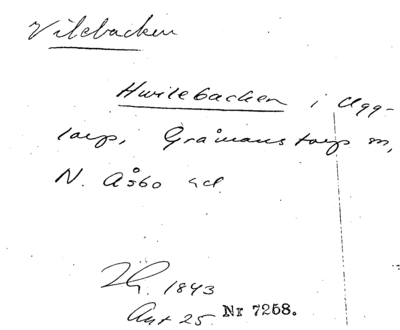 Vilebacken
Hwilebacken i Ugg-
larp, Gråmanstorp sn,
N. Åsbo hd
1843
Avt 25. Nr 7258.